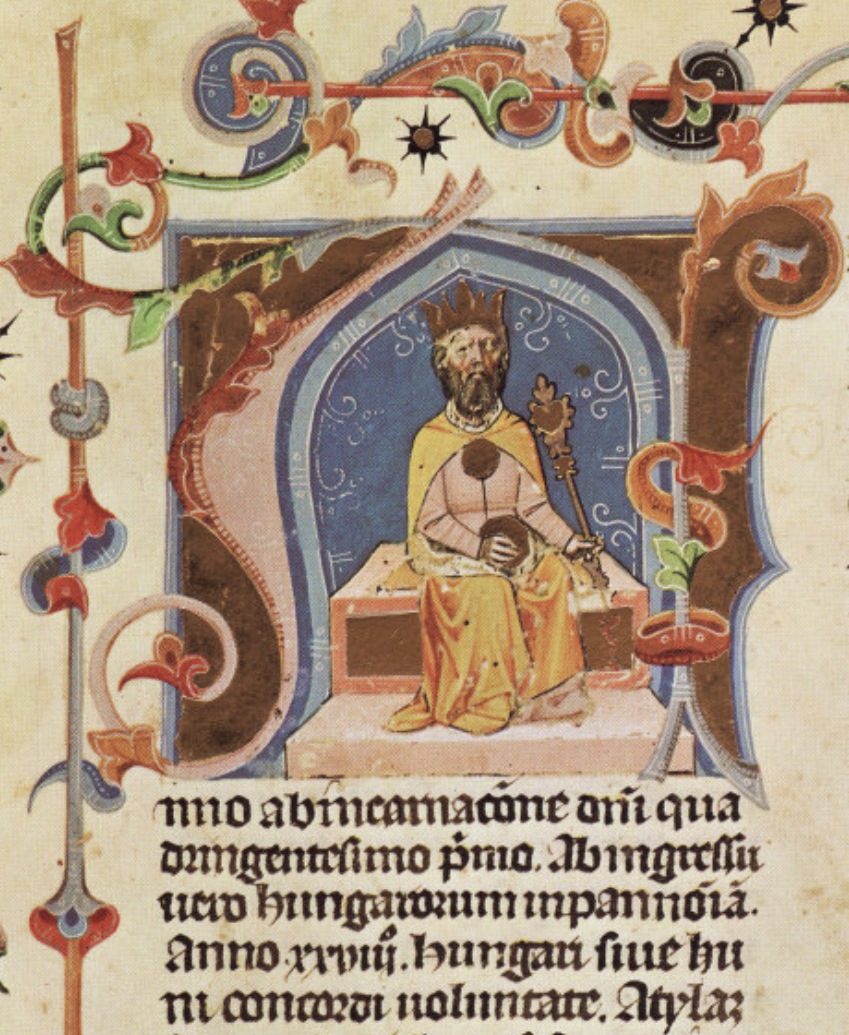 nno ab incarnacõne dñi qua
dringentesimo p̃mo. Ab ingressu
uero hungarorum in pannoiã.
Anno xxviiiº. hungari siue hu
ni concordi uoluntate. Atylaz